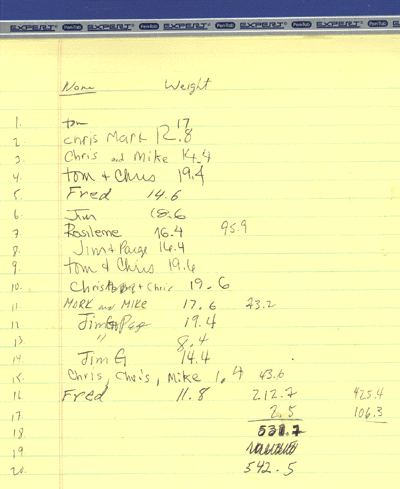 EXPERT PenTab EXPERT PenTab EXPERT PenTab EXPERT PenTab EXPERT PenTab EXPERT
Name Weight
1. tom 17
2. chris Mark 12.8
3. Chris and Mike 14.4
4. tom + Chris 19.4
5. Fred 14.6
6. Jim 18.6
7. Rosilene 16.4 95.9
8. Jim + Paige 16.4
9. tom & Chris 19.6
10. Chris + Chris 19.6
11 MARK and MIKE 17.6 73.2
12 Jim G 19.4
13 " 8.4
14. Jim G 14.4
15. Chris, Chris, Mike 1.4 43.6
16 Fred 11.8 212.7 425.4
17 2.5 106.3
18 531.7
19
20. 542.5